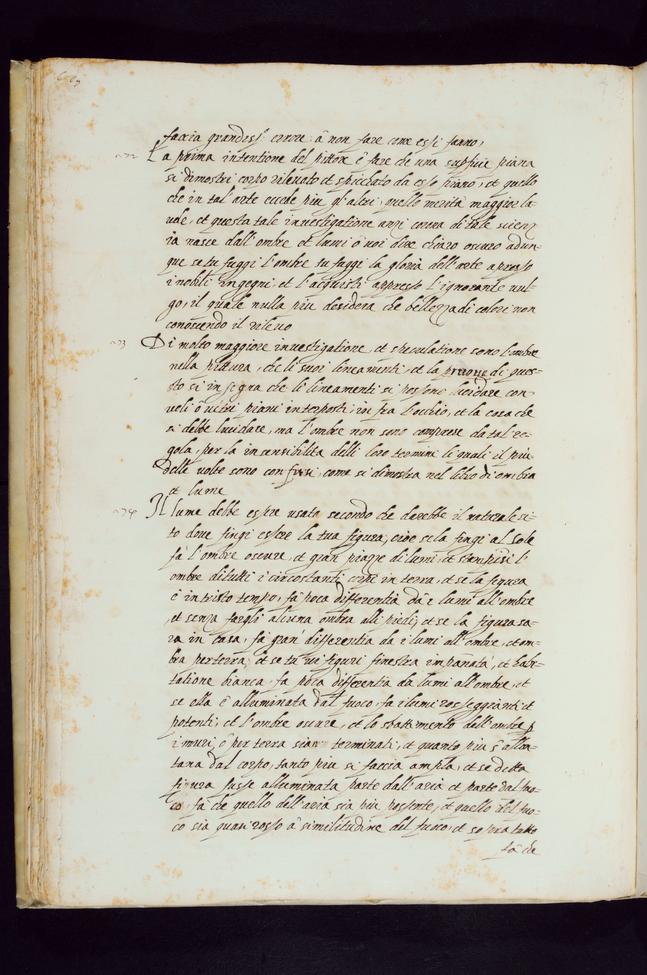 faccia grandess.e errore à non fare come essi fano,
La prima intentione del pittore è fare che una supfitie piana
si dimostri corpo rilevato et spiccato da esso piano, et quello
che in tal'arte eccede piu gl'altri, quello merità maggior la-
ude, et questa tale investigatione anzi corona di tale scienz-
ia nasce dall'ombre et lumi ò voi dire chiaro oscuro adun-
que se tu fuggi l'ombre tu fuggi la gloria dell'arte apresso
i nobili ingegni, et l'acquisti appresso l'ignorante vul-
go, il quale nulla piu desidera che bellezza di colori non
conoscendo il rilevo
Di molto maggiore investigatione, et speculatione sono l'ombre
nella pittura, che li suoi lineamenti, et la prova de que-
sto si insegna che li lineamenti si possono lucidare con
veli ò vetri piani interposti, in fra l'occhio, et la cosa che
si debbe lucidare, ma l'ombre non sono comprese da tal re-
gola, per la insensibilita delli loro termini li quali il piu
delle volte sono confusi, come si dimostra nel libro di ombra
et lume
Il lume debbe essere usato secondo che darebbe il naturale si-
to dove fingi essere la tua figura, cioè se la fingi al sole
fà l'ombre oscure, et gran piazze di lumi, et stampisci l'
ombre di tutti i circostanti corpi in terra, et se la figura
è in tristo tempo, fà poca differentia da i lumi all'ombre
et senza fargli alcuna ombra alli piedi, et se la figura sa-
ra in casa, fà gran differentia da i lumi all'ombre, et om-
bra per terra, et se tu vi figuri finestra impanata, et habi-
tatione bianca, fà poca differentia da lumi all'ombre, et
se ella è alluminata dal fuoco, fa i lumi rosseggianti et
potenti, et l'ombre oscure, et lo sbattimento dell'ombre p
i muri, ò per terra sian terminati, et quanto piu s'allon-
tana dal corpo, tanto piu si faccia ampla, et se detta
figura fusse alluminata parte dall'aria et parte dal fuo-
co, fà che quello dell'aria sia piu possente, et quello del fuo-
co sia quasi rosso à similitudine del fuoco, et sopra tutto
fà che